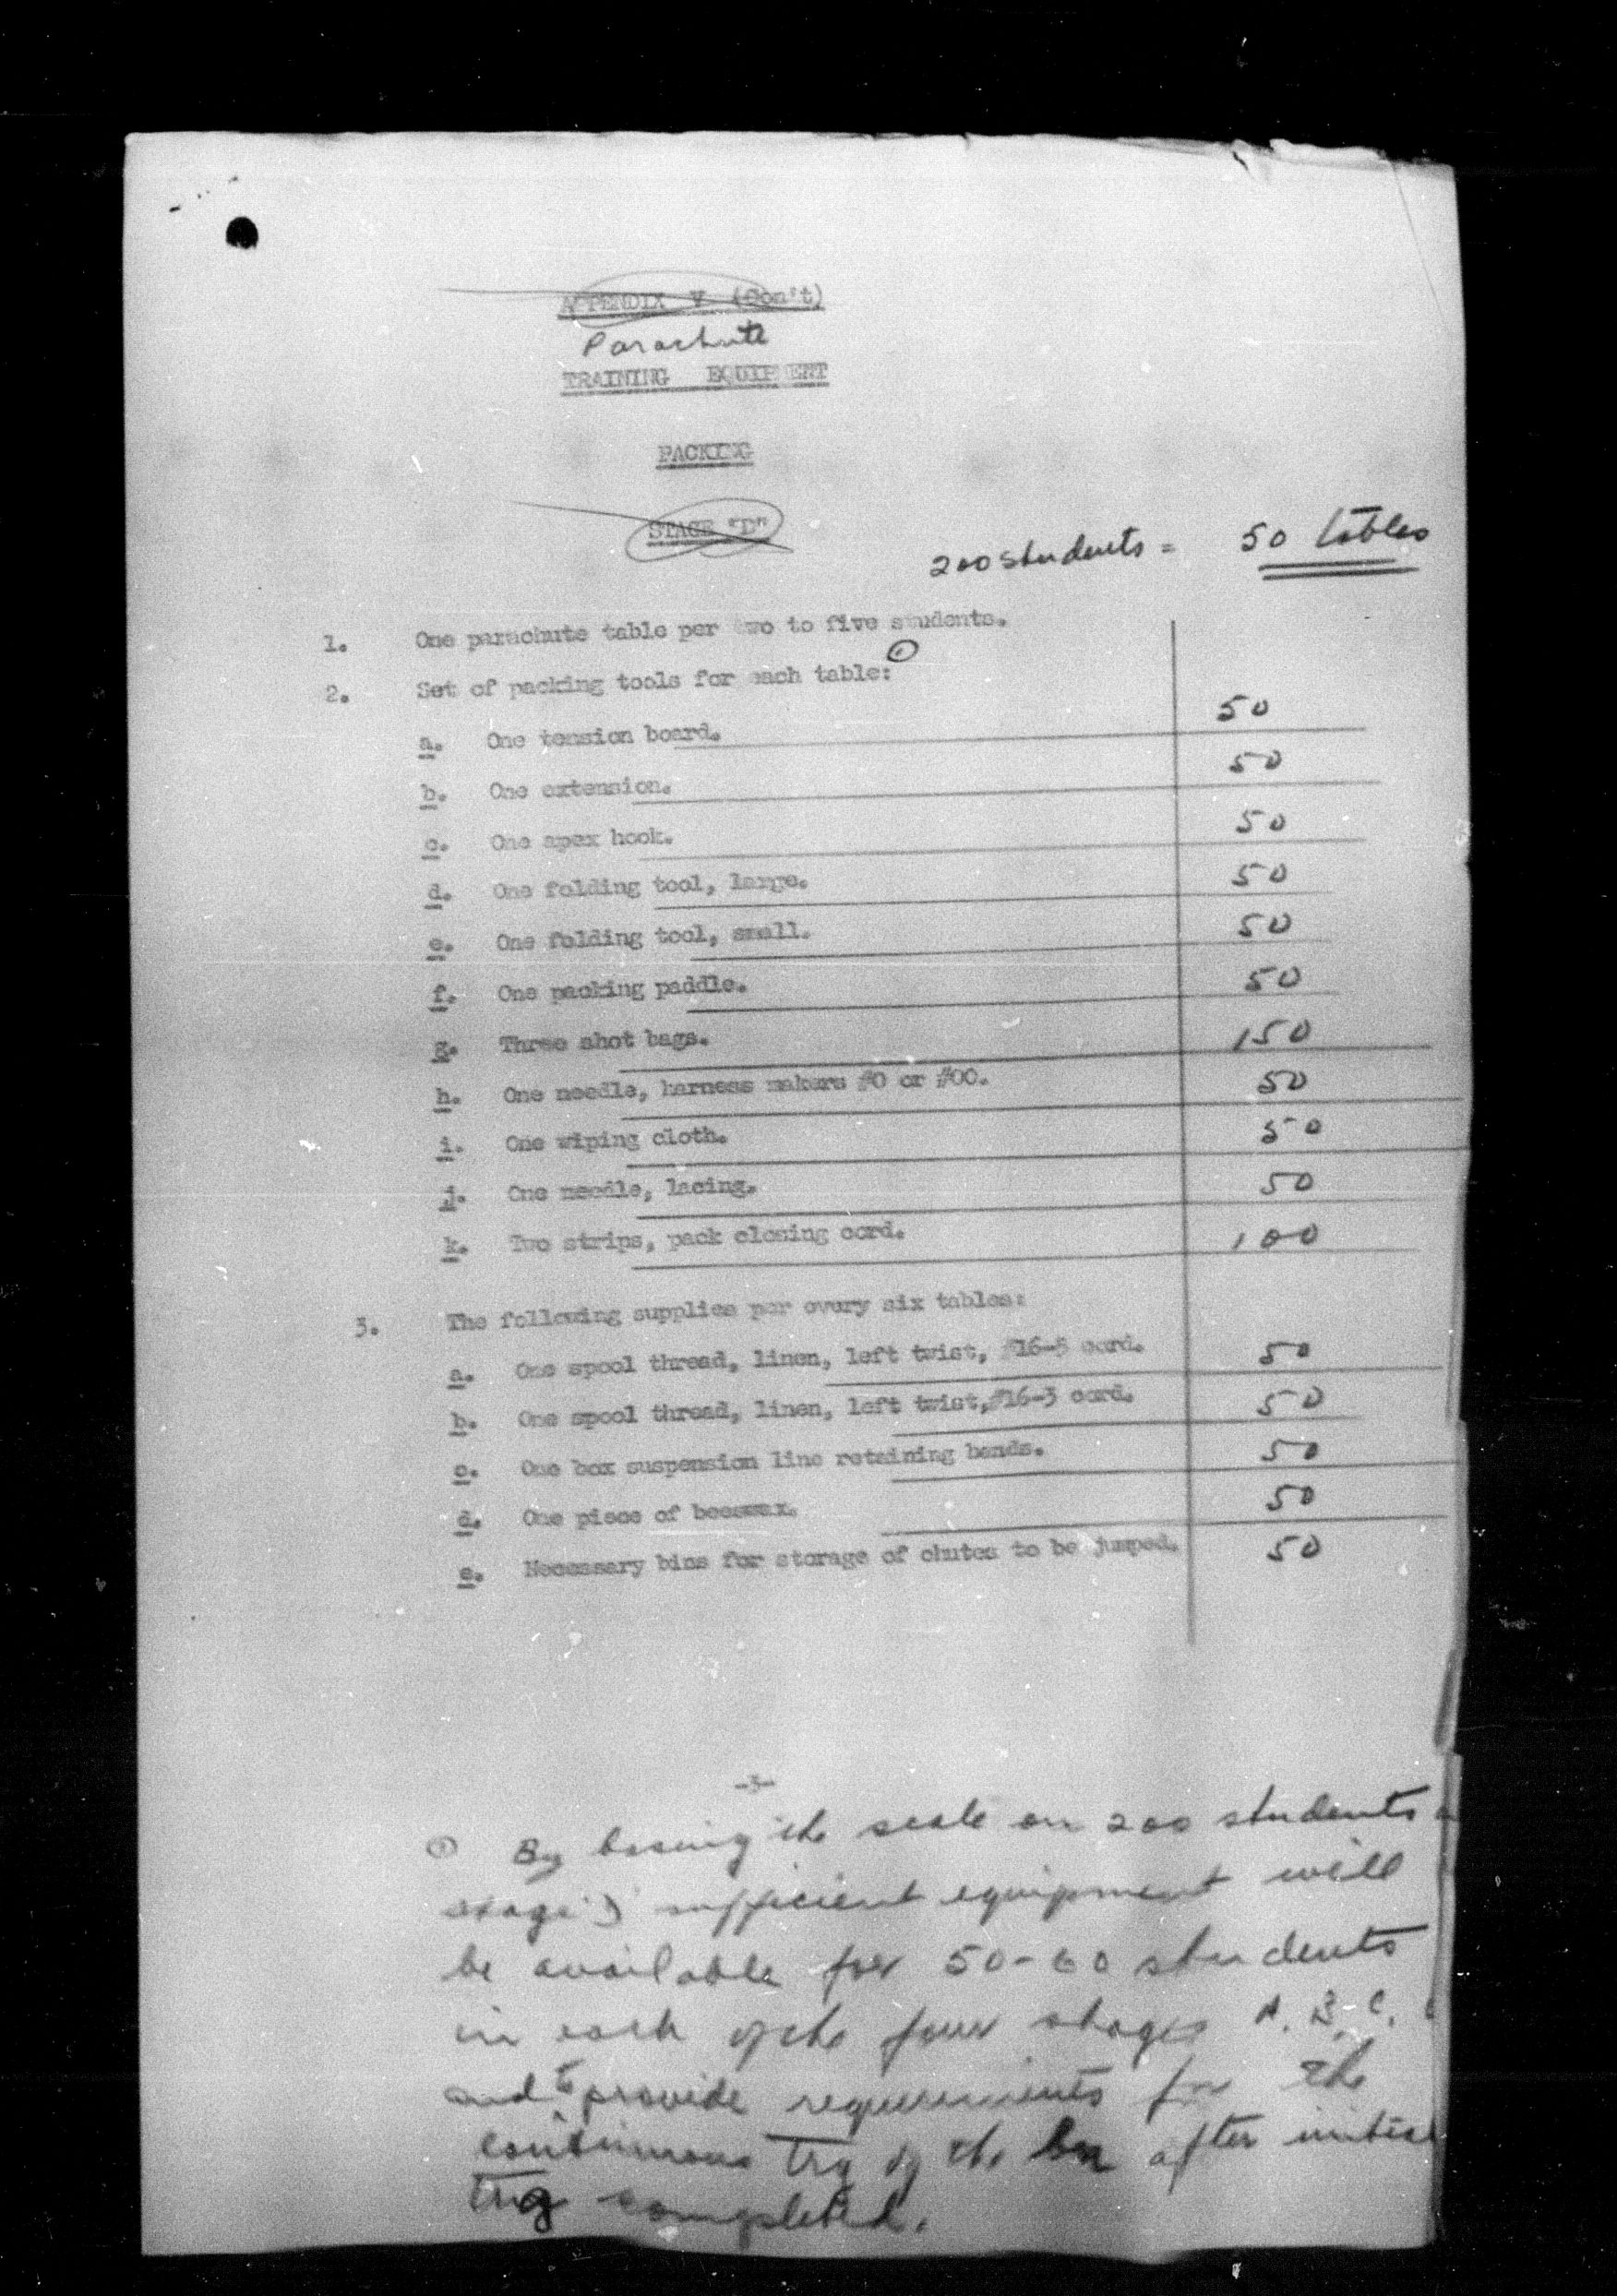 APPENDIX V (Con't)
Parachute
TRAINING EQUIPMENT
PACKING
STAGE "D"
200 students = 50 tables
1. One parachute table per two to five students.
2. Set of packing tools for each table:
a. One tension board. 50
b. One extension. 50
c. One apex hook. 50
d. One folding tool, large. 50
e. One folding tool, small. 50
f. One packing paddle. 50
g. Three shot bags. 150
h. One needle, harness makers #0 or #00. 50
i. One wiping cloth. 50
j. One needle, lacing. 50
k. Two strips, pack closing cord. 100
3. The following supplies per every six tables:
a. One spool thread, linen, left twist, #16-5 cord. 50
b. One spool thread, linen, left twist,#16-3 cord. 50
c. One box suspension line retaining bands. 50
d. One piece of beeswax. 50
e. Necessary bins for storage of chutes to be jumped. 50
-3-
① By basing the scale on 200 students
sufficient equipment will
be available for 50-60 students
in each of the four stages A. B. C.
and to provide requirements for the
continuous trg of the bn after initial
trg completed.